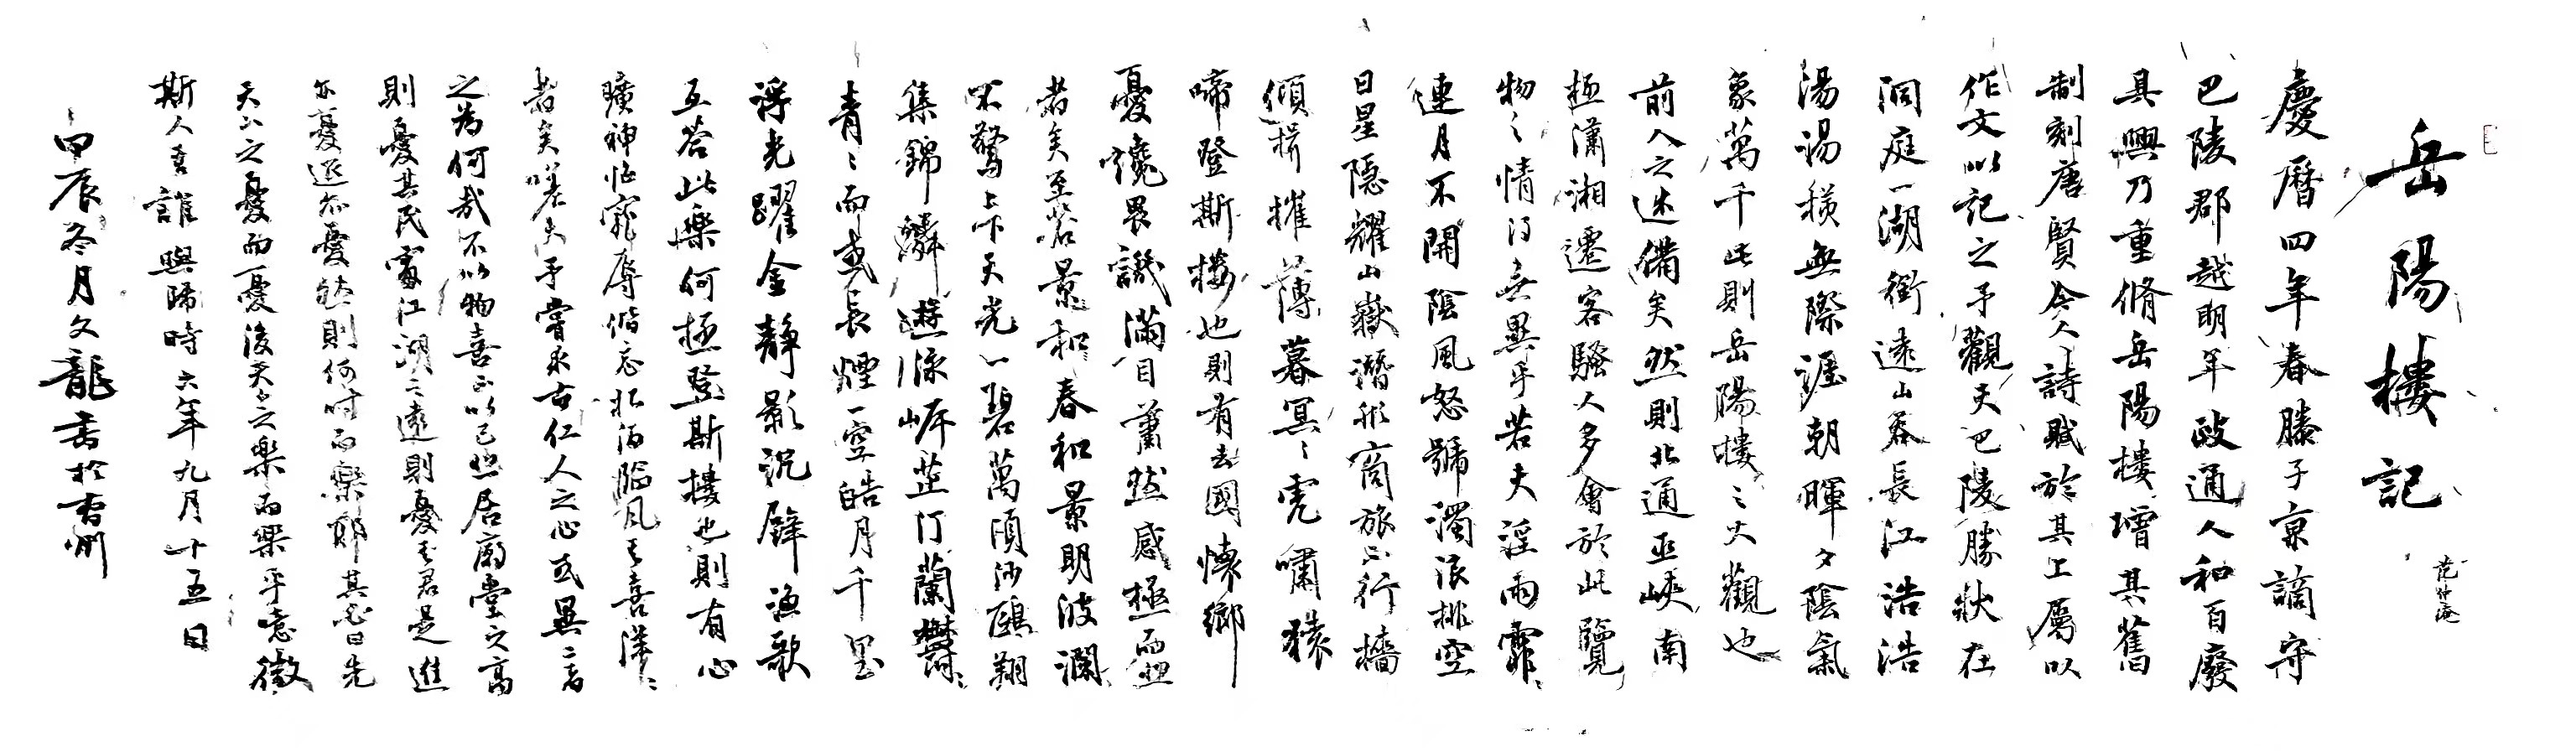 岳陽樓記
范仲淹
慶曆四年春滕子京謫守
巴陵郡越明年政通人和百廢
具興乃重脩岳陽樓增其舊
制刻唐賢今人詩賦於其上屬以
作文以記之予觀夫巴陵勝狀在
洞庭一湖銜遠山吞長江浩浩
湯湯橫無際涯朝暉夕陰氣
象萬千此則岳陽樓之大觀也
前人之述備矣然則北通巫峽南
極瀟湘遷客騷人多會於此覽
物之情得無異乎若夫淫雨霏霏
連月不開陰風怒號濁浪排空
日星隱耀山嶽潛形商旅不行檣
傾楫摧薄暮冥冥虎嘯猿
啼登斯樓也則有去國懷鄉
憂讒畏譏滿目蕭然感極而悲
者矣至若景和春和景明波瀾
不驚上下天光一碧萬頃沙鷗翔
集錦鱗遊泳岸芷汀蘭鬱鬱
青青而或長煙一空皓月千里
浮光躍金靜影沉璧漁歌
互答此樂何極登斯樓也則有心
曠神怡寵辱偕忘把酒臨風其喜洋洋
者矣嗟夫予嘗求古仁人之心或異二者
之為何哉不以物喜不以己悲居廟堂之高
則憂其民處江湖之遠則憂其君是進
亦憂退亦憂然則何時而樂耶其必曰先
天下之憂而憂後天下之樂而樂乎噫微
斯人吾誰與歸時六年九月十五日
甲辰冬月文龍書於